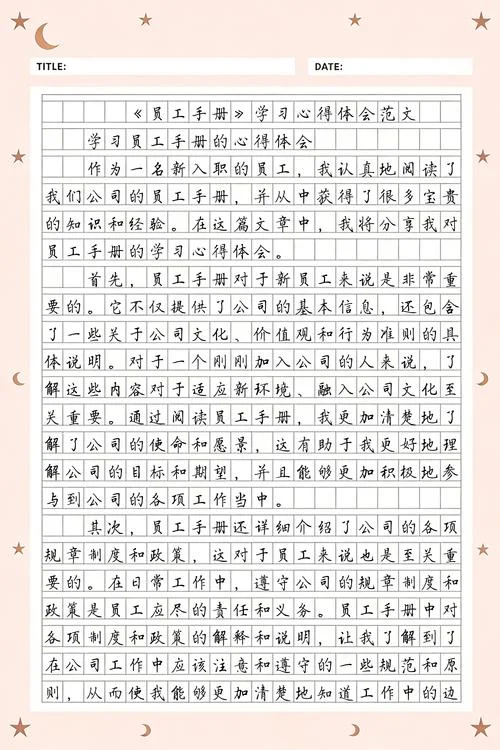 TITLE: DATE:
《员工手册》学习心得体会范文
学习员工手册的心得体会
作为一名新入职的员工，我认真地阅读了
我们公司的员工手册，并从中获得了很多宝贵
的知识和经验。在这篇文章中，我将分享我对
员工手册的学习心得体会。
首先，员工手册对于新员工来说是非常重
要的。它不仅提供了公司的基本信息，还包含
了一些关于公司文化、价值观和行为准则的具
体说明。对于一个刚刚加入公司的人来说，了
解这些内容对于适应新环境、融入公司文化至
关重要。通过阅读员工手册，我更加清楚地了
解了公司的使命和愿景，这有助于我更好地理
解公司的目标和期望，并且能够更加积极地参
与到公司的各项工作当中。
其次，员工手册还详细介绍了公司的各项
规章制度和政策，这对于员工来说也是至关重
要的。在日常工作中，遵守公司的规章制度和
政策是员工应尽的责任和义务。员工手册中对
各项制度和政策的解释和说明，让我了解到了
在公司工作中应该注意和遵守的一些规范和原
则，从而使我能够更加清楚地知道工作中的边